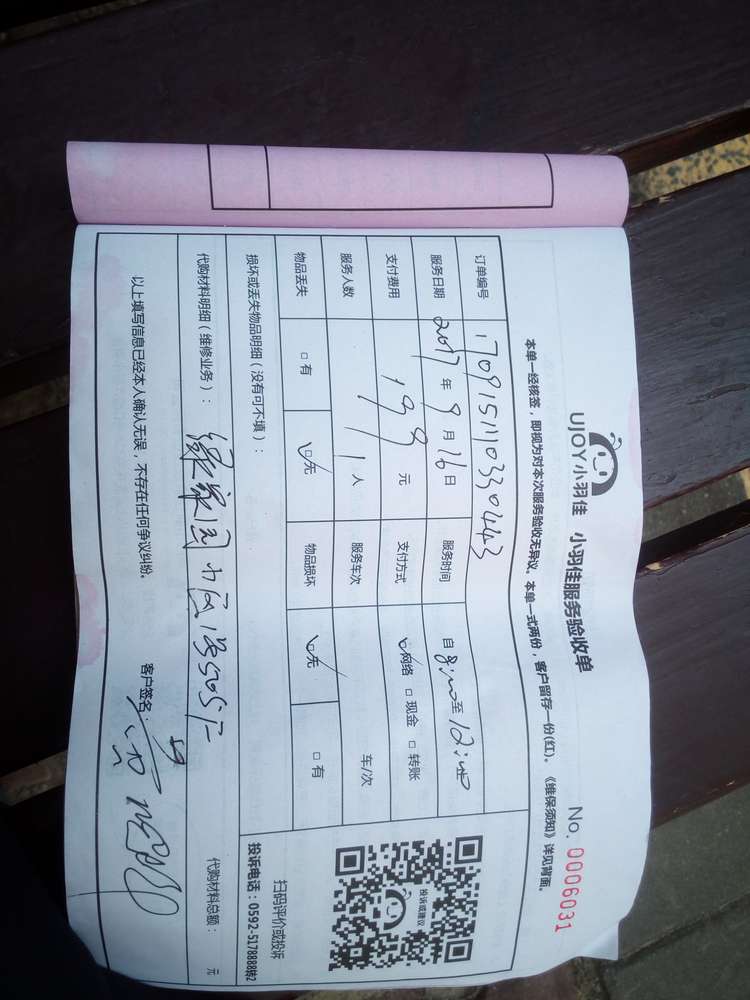 UJOY小羽佳 小羽佳服务验收单 No. 0006031
本单一经核签，即视为对本次服务验收无异议。本单一式两份，客户留存一份(红)。《维保须知》详见背面。
订单编号 170915111033044443
服务日期 2017年9月16日 服务时间 自8:00至12:00
支付费用 199元 支付方式 ☑网络 □现金 □转账
服务人数 1人 服务车次 车/次
物品丢失 □有 ☑无 物品损坏 ☑无 □有
损坏或丢失物品明细（没有可不填）：
扫码评价或投诉
投诉或建议
投诉电话：0592-5178888转2
代购材料明细（维修业务）： 绿家园
代购材料总额： 元
以上填写信息已经本人确认无误，不存在任何争议纠纷。 客户签名：